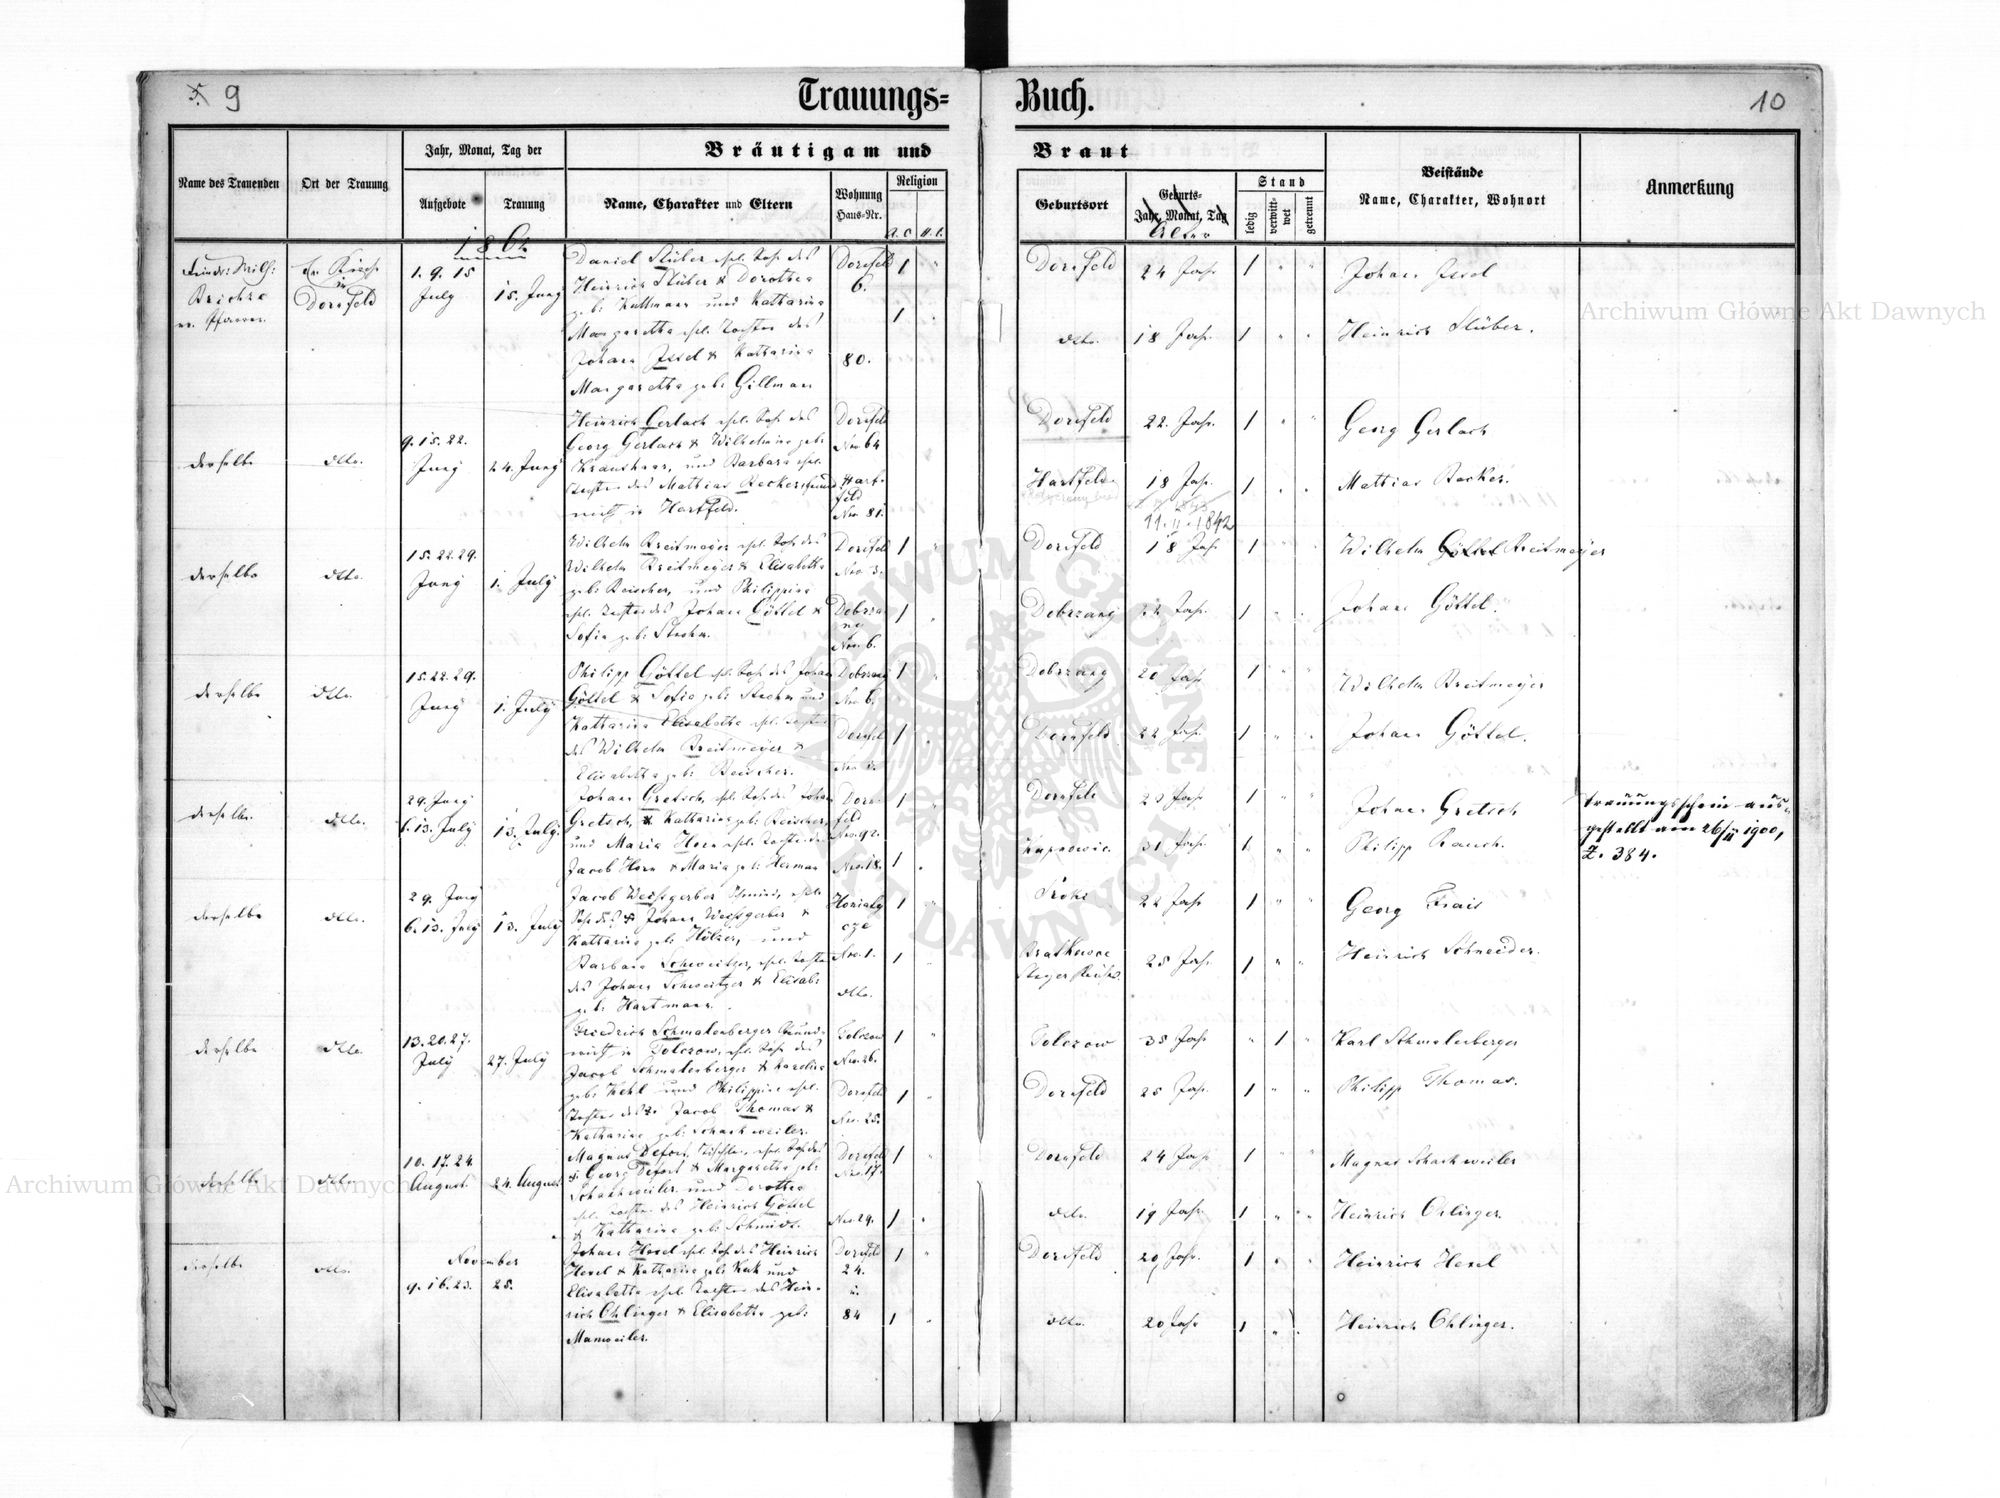 9
Trauungs= Buch.
10
Name des Trauenden
Ort der Trauung
Jahr, Monat, Tag der
Aufgebote
Trauung
Bräutigam und
Name, Charakter und Eltern
Wohnung
Haus=Nr.
Religion
A. C. H. C.
Braut
Geburtsort
Geburts=
Jahr, Monat, Tag
Alter
Stand
ledig
verwitt=
wet
getrennt
Beistände
Name, Charakter, Wohnort
Anmerkung
1862
Dornfeld
1. 9. 15
July
15. Juny
Daniel Stüber ehl. Sohn des
Heinrich Stüber & Dorothea
geb: Kullmann und Katharina
Margaretha ehl. Tochter des
Johann Jesel & Katharina
Margaretha geb: Gillman
Dornfeld
6.
80.
1
1
Dornfeld
24 Jahr
1
Johann Jesel
dtto.
18 Jahr.
1
Heinrich Stüber.
derselbe
dtto.
9. 15. 22.
Juny
24. Juny
Heinrich Gerlach ehl. Sohn des
Georg Gerlach & Wilhelmine geb:
Kraushaar, und Barbara ehl.
Tochter des Mathias Becker
in Hartfeld.
Dornfeld
Nro 64
Hart-
feld
Nro 81.
Dornfeld
22. Jahr.
1
Georg Gerlach
Hartfeld
18 Jahr.
11. II. 1842
1
Mathias Becker.
derselbe
dtto.
15. 22. 29.
Juny
1. July
Wilhelm Breitmeyer ehl. Sohn des
Wilhelm Breitmeyer & Elisabetha
geb: Reischer, und Philippina
ehl. Tochter des Johann Göttel &
Sofia geb: Strohm.
Dornfeld
Nro. 3.
Dobrza-
ny
Nro. 6.
1
1
Dornfeld
18 Jahr
1
Wilhelm Göttel Breitmeyer
Dobrzany
22 Jahr.
1
Johann Göttel.
derselbe
dtto.
15. 22. 29.
Juny
1. July
Philipp Göttel ehl. Sohn des Johann
Göttel & Sofia geb: Strohm und
Katharina Elisabetha ehl. Tochter
des Wilhelm Breitmeyer &
Elisabetha geb: Reischer.
Dobrzany
Nro 6.
1
1
Dobrzany
20 Jahr
1
Wilhelm Breitmeyer
Dornfeld
22 Jahr.
1
Johann Göttel.
derselbe.
dtto.
29. Juny
6. 13. July
13. July.
Johann Gretsch, ehl. Sohn des Johann
Gretsch, & Katharina geb: Reischer,
und Maria Horn ehl. Tochter des
Jacob Horn & Maria geb: Herman
Dorn-
feld
Nro. 92.
Nro. 18.
1
1
Dornfeld
23 Jahr
1
Johann Gretsch
31 Jahr.
1
Philipp Rauch.
Trauungsschein aus-
gestellt am 26/II 1900,
Z. 384.
derselbe
dtto.
29. Juny
6. 13. July
13. July
Jacob Weissgerber Schmied, ehl.
Sohn des † Johann Weissgerber &
Katharina geb: Hölzer, und
Barbara Schweitzer, ehl. Tochter
des Johann Schweitzer & Elisab:
geb: Hartmann.
Honiaty
cze
Nro. 1.
dtto.
1
1
22 Jahr
1
Georg
Heinrich Schneider.
25 Jahr.
1
derselbe
dtto.
13. 20. 27.
July
27. July
Friedrich Schmalenberger Grund-
wirth in Tolczow, ehl. Sohn des
Jacob Schmalenberger & Karolina
geb: Kehl und Philippine ehl.
Tochter des † Jacob Thomas &
Katharina geb: Schankweiler.
Tolczow
Nro. 26.
Dornfeld
Nro. 25.
1
1
Tolczow
35 Jahr
1
Karl Schmalenberger
Dornfeld
25 Jahr.
1
Philipp Thomas.
derselbe
dtto.
10. 17. 24.
August
24. August
Magnus Defort, Tischler, ehl. Sohn des
† Georg Defort & Margaretha geb:
Schankweiler und Dorothea
ehl. Tochter des Heinrich Göttel
& Katharina geb: Schmidt.
Dornfeld
Nro. 17.
Nro. 29.
1
1
Dornfeld
24 Jahr
1
Magnus Schankweiler
dtto.
19 Jahr
1
Heinrich Ohlinger.
derselbe
dtto.
November
9. 16. 23.
25.
Johann Hesel ehl. Sohn des Heinrich
Hesel & Katharina geb: Keck und
Elisabetha ehl. Tochter des Hein-
rich Ohlinger & Elisabetha geb:
Manweiler.
Dornfeld
24.
u.
84
1
1
Dornfeld
20 Jahr.
1
Heinrich Hesel
dtto.
20 Jahr
1
Heinrich Ohlinger.
Archiwum Główne Akt Dawnych
Archiwum Główne Akt Dawnych
ARCHIWUM GŁÓWNE AKT DAWNYCH